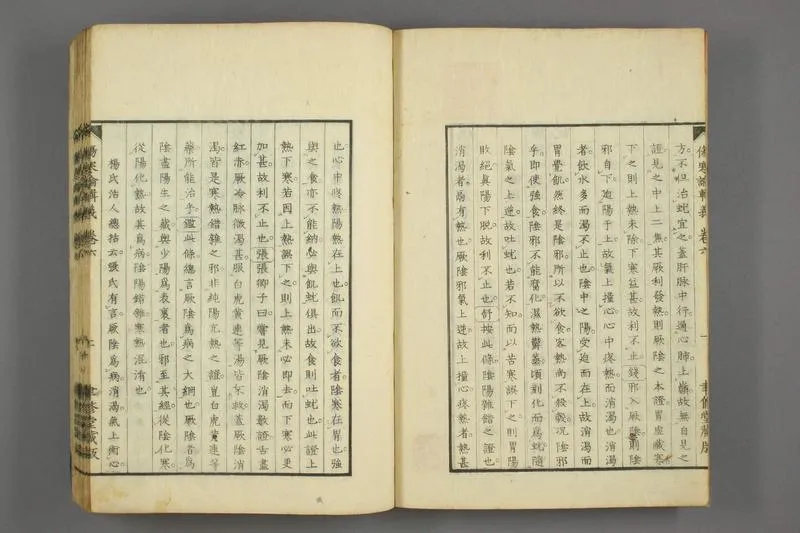 傷寒論輯義 卷六
方不但治蚘宜之蓋肝脉中行通心肺上巓故無自見之
證見之中上二焦其厥利發熱則厥陰之本證胃虛藏寒
下之則上熱未除下寒益甚故利不止錢邪入厥陰則陰
邪自下迫陽于上故氣上撞心心中疼熱而消渴也消渴
者飲水多而渴不止也陰中之陽受迫而在上故消渴而
胃覺飢然終是陰邪所以不欲食客熱尚不殺穀况陰邪
乎即使強食陰邪不能腐化濕熱鬱蒸頃刻化而爲蚘隨
陰氣之上逆故吐蚘也若不知而以苦寒誤下之則胃陽
敗絕眞陽下脫故利不止也舒按此條陰陽雜錯之證也
消渴者膈有熱也厥陰邪氣上逆故上撞心疼熱者熱甚
也心中疼熱陽熱在上也飢而不欲食者陰寒在胃也強
與之食亦不能納必與飢蚘俱出故食則吐蚘也此證上
熱下寒若因上熱誤下之則上熱未必即去而下寒必更
加甚故利不止也張張卿子曰嘗見厥陰消渴數證舌盡
紅赤厥冷脉微渴甚服白虎黄連等湯皆不救蓋厥陰消
渴皆是寒熱錯雜之邪非純陽亢熱之證豈白虎黄連等
藥所能治乎鑑此條總言厥陰爲病之大綱也厥陰者爲
陰盡陽生之藏與少陽爲表裏者也邪至其經從陰化寒
從陽化熱故其爲病陰陽錯雜寒熱混淆也
楊氏活人總括云張氏有言厥陰爲病消渴氣上衝心
傷寒論輯義 卷六